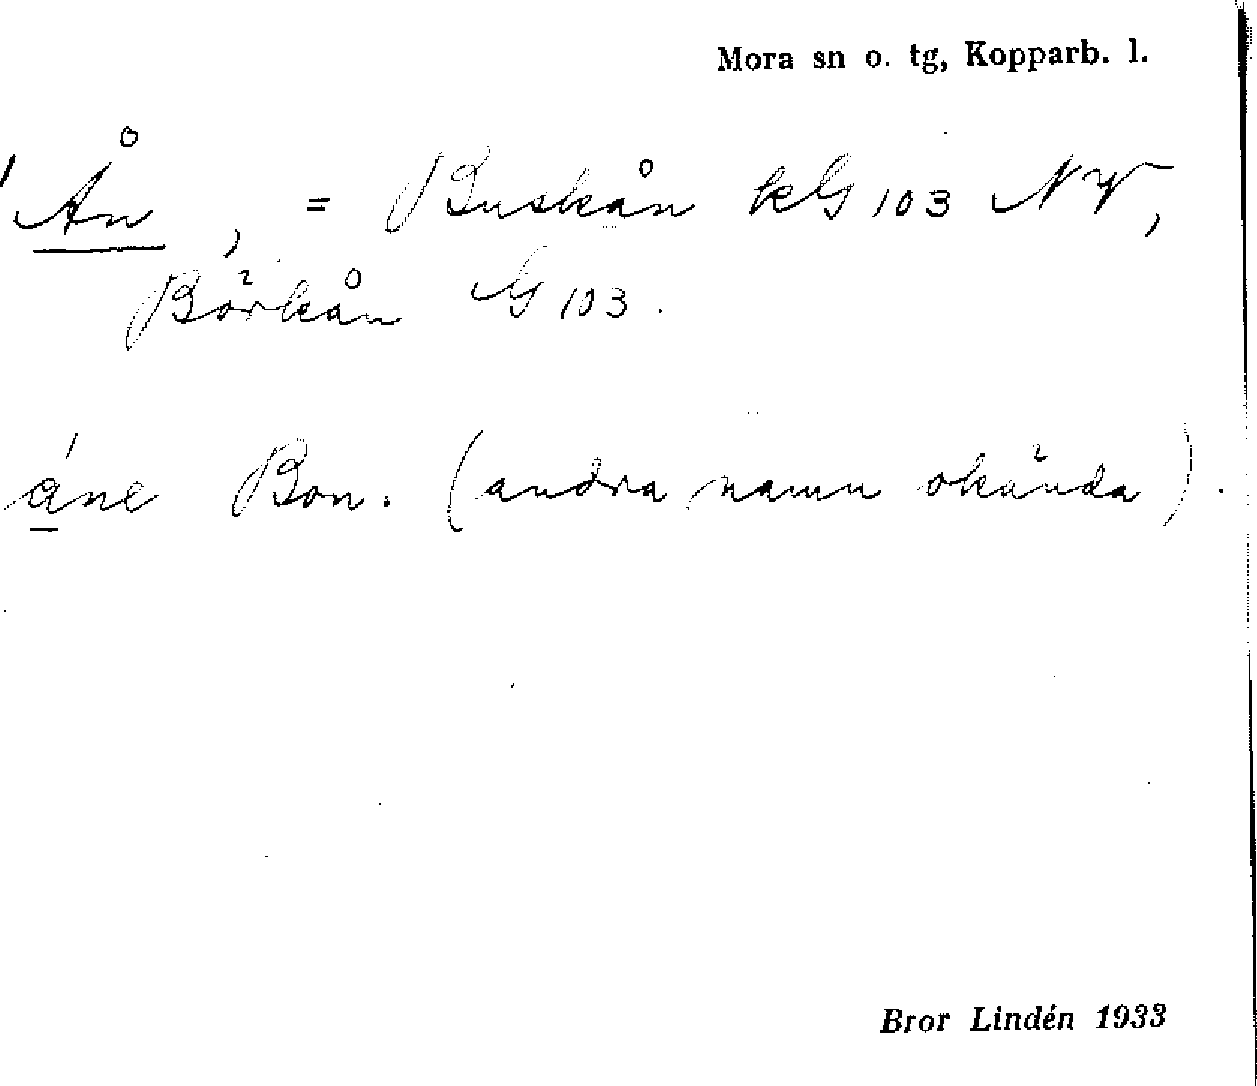 Mora sn o. tg, Kopparb. l.
Ån, = Buskån kG 103 NV,
Börkån G 103.
áne Bon. (andra namn okända).
Bror Lindén 1933